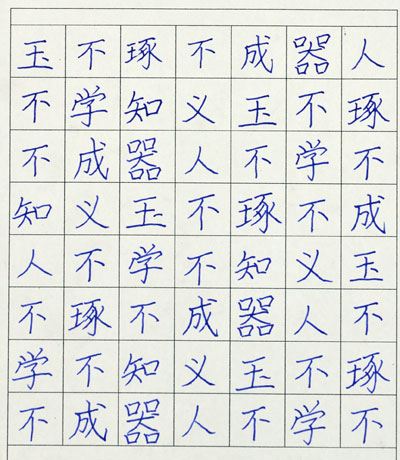 玉不琢不成器人
不学知义玉不琢
不成器人不学不
知义玉不琢不成
人不学不知义玉
不琢不成器人不
学不知义玉不琢
不成器人不学不